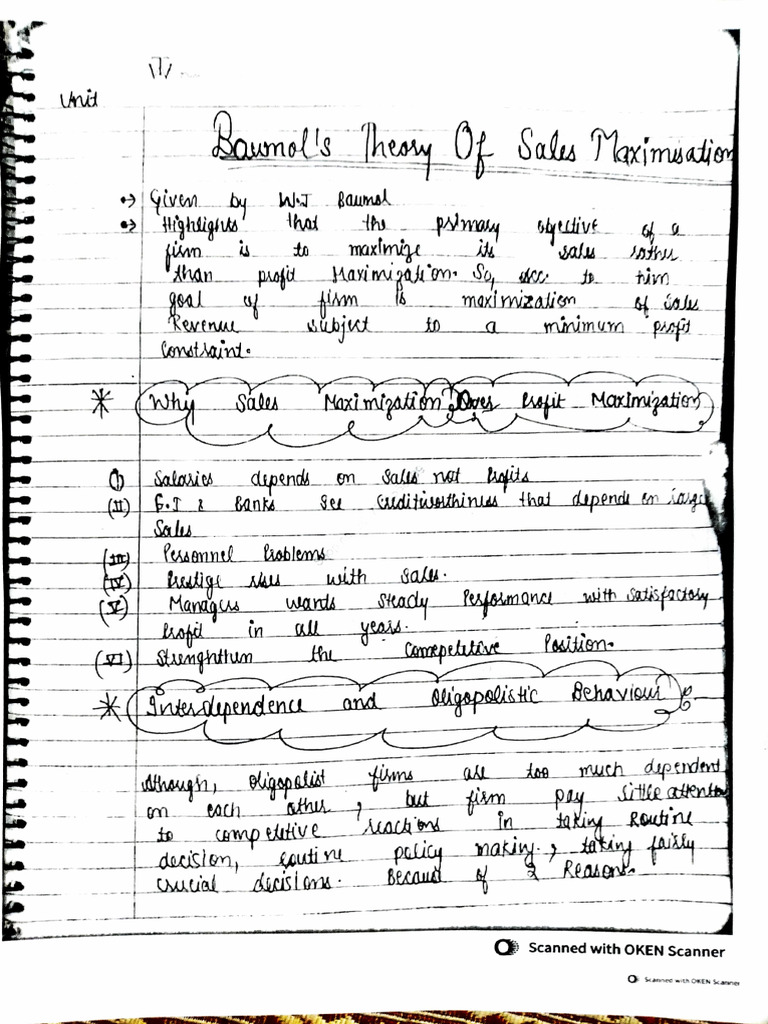 Unit
Baumol's Theory Of Sales Maximisation
Given by W.J Baumol
Highlights that the primary objective of a
firm is to maximize its sales rather
than profit Maximization. So, acc. to him
goal of firm is maximization of Sales
Revenue subject to a minimum profit
Constraint.
Why Sales Maximization Over Profit Maximization
(I) Salaries depends on Sales not Profits
(II) F.I & Banks See Creditworthiness that depends on large
Sales
(III) Personnel Problems
(IV) Prestige rises with sales.
(V) Managers wants Steady Performance with satisfactory
Profit in all years.
(VI) Strenghthen the Comepetetive Position.
Interdependence and Oligopolistic Behaviour
Although, Oligopolist firms are too much dependent
on each other, but firm pay little attention
to competetive reactions in taking Routine
decision, routine policy making, taking fairly
crucial decisions. Because of 2 Reasons.
Scanned with OKEN Scanner
Scanned with OKEN Scanner